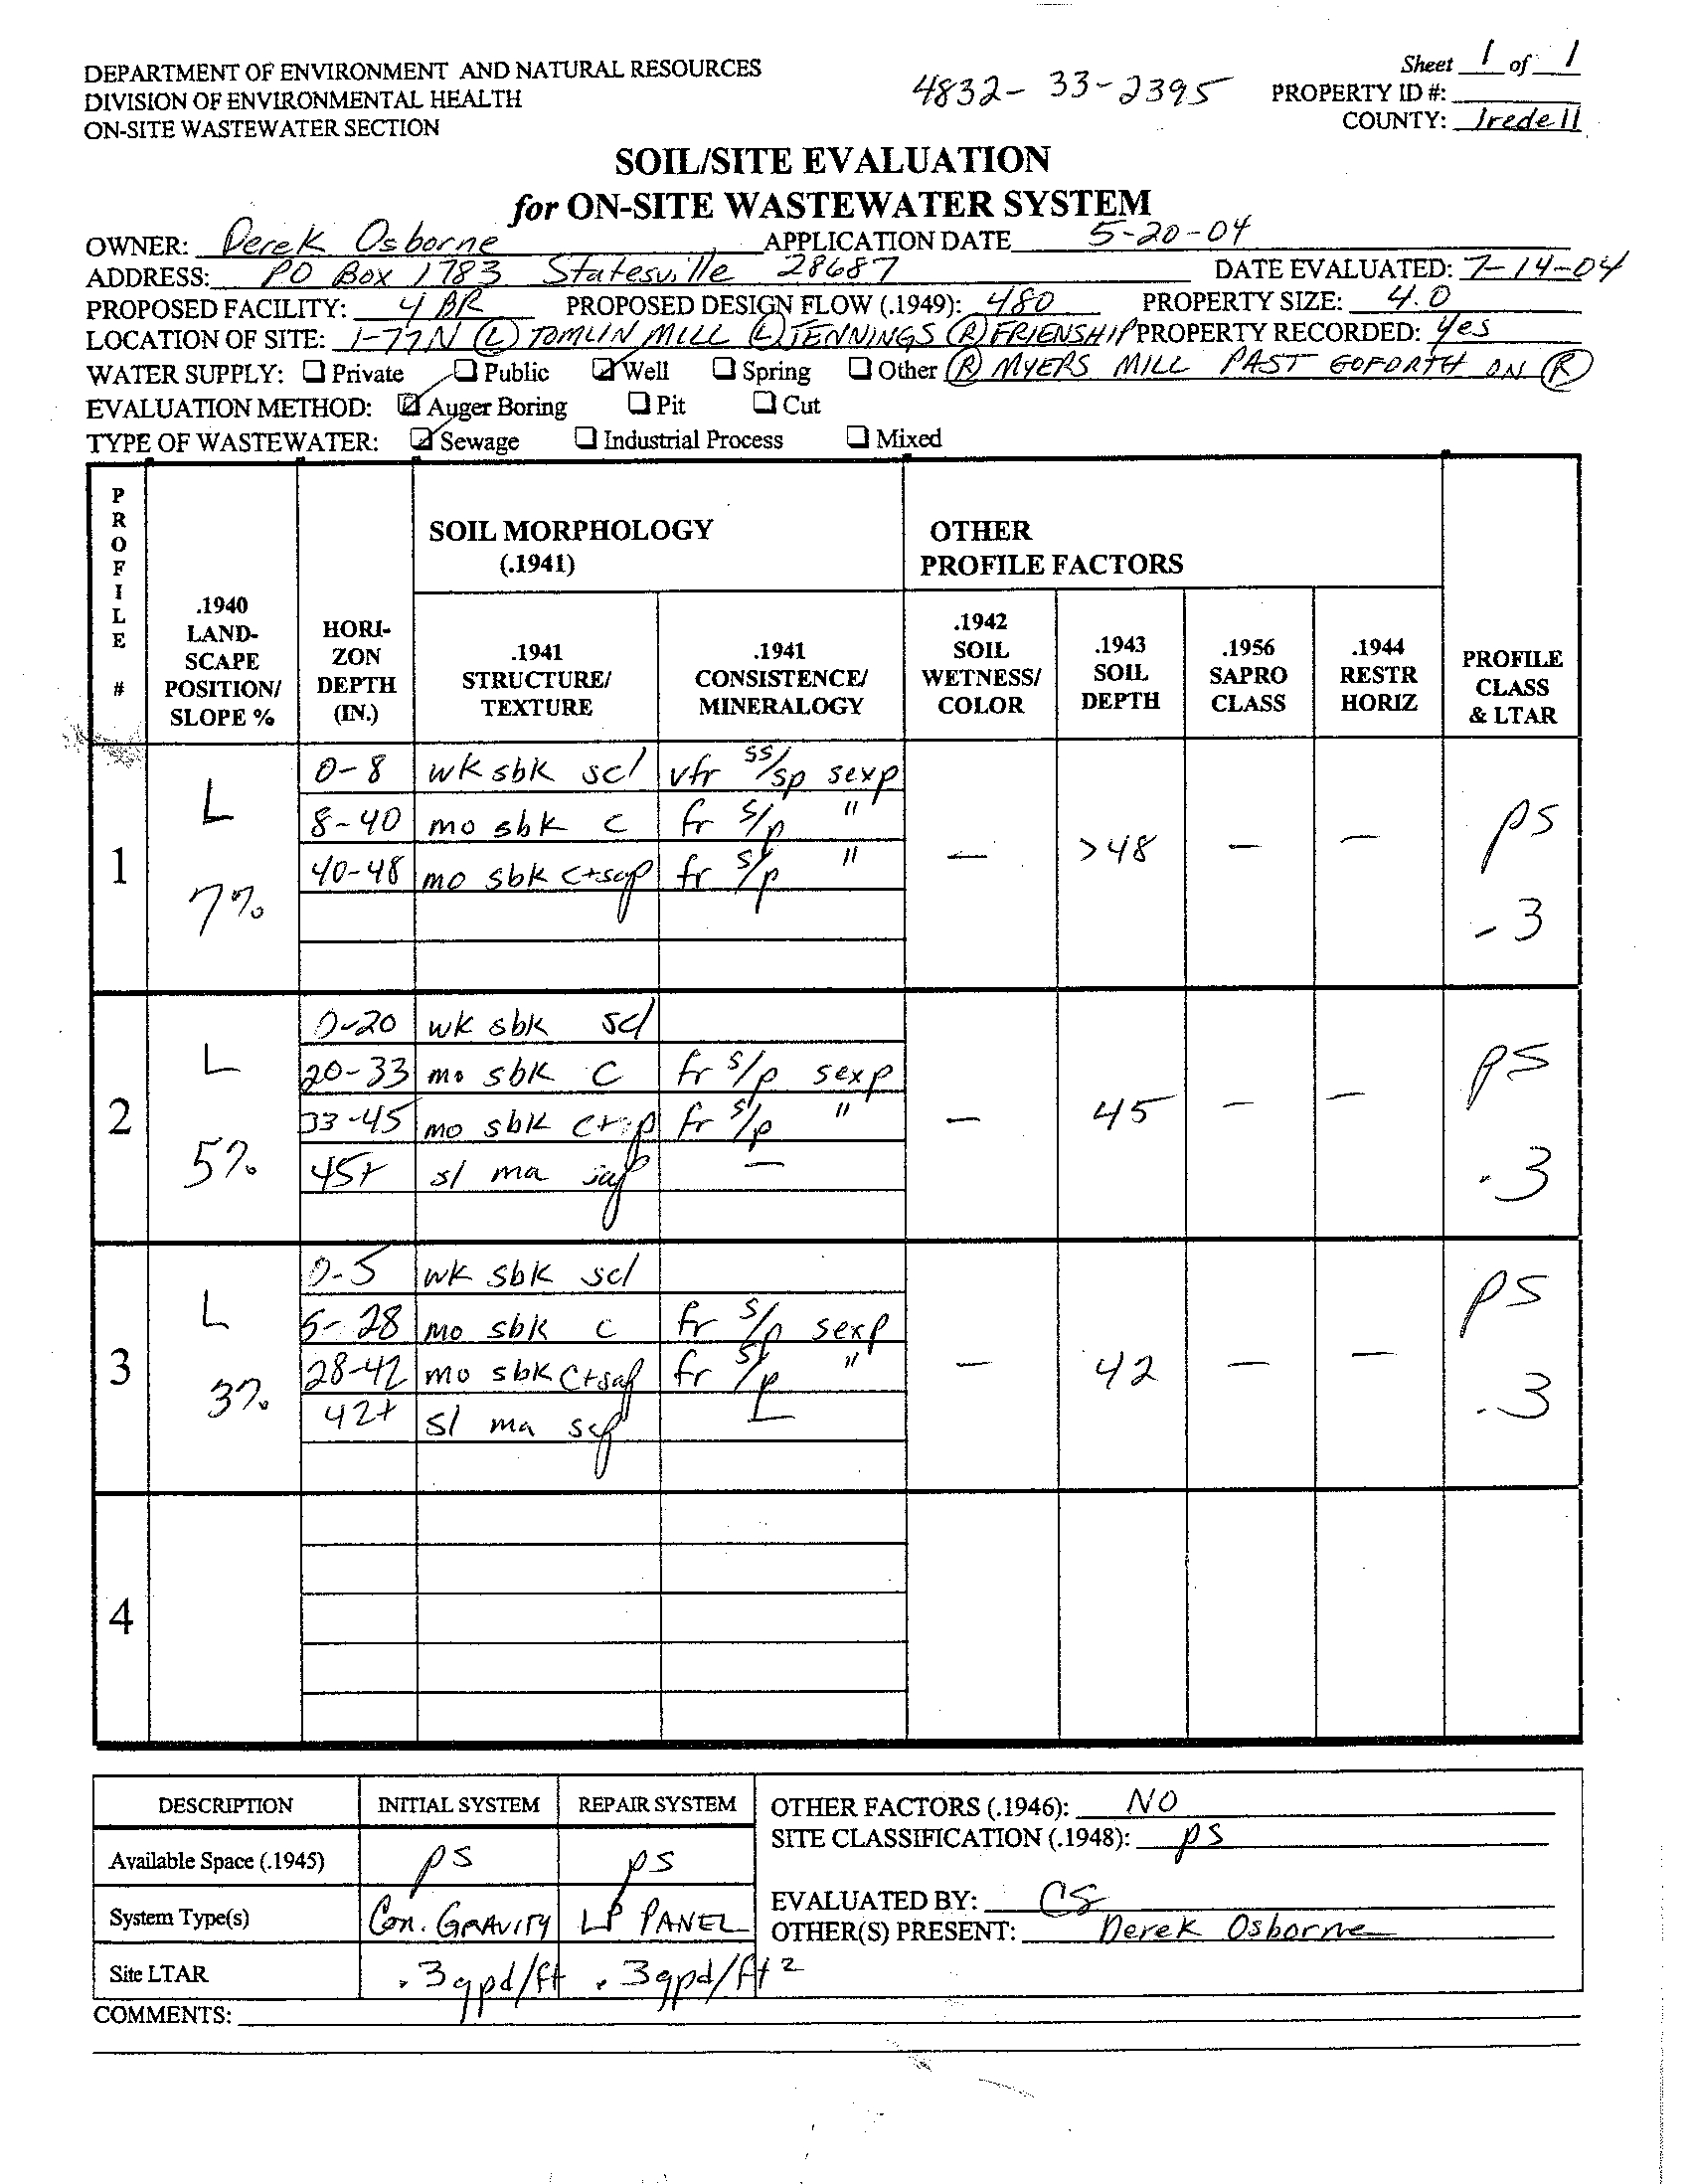 Sheet 1 of 1
DEPARTMENT OF ENVIRONMENT AND NATURAL RESOURCES
DIVISION OF ENVIRONMENTAL HEALTH
ON-SITE WASTEWATER SECTION
4832-33-2395
PROPERTY ID #:
COUNTY: Iredell
SOIL/SITE EVALUATION
for ON-SITE WASTEWATER SYSTEM
OWNER: Derek Osborne APPLICATION DATE 5-20-04
ADDRESS: PO Box 1783 Statesville 28687 DATE EVALUATED: 7-14-04
PROPOSED FACILITY: 4 BR PROPOSED DESIGN FLOW (.1949): 480 PROPERTY SIZE: 4.0
LOCATION OF SITE: I-77N (L) TOMLIN MILL (L) JENNINGS (R) FRIENSHIP PROPERTY RECORDED: yes
WATER SUPPLY: ❑ Private ❑ Public ☑ Well ❑ Spring ❑ Other (R) MYERS MILL PAST GOFORTH ON (R)
EVALUATION METHOD: ☑ Auger Boring ❑ Pit ❑ Cut
TYPE OF WASTEWATER: ☑ Sewage ❑ Industrial Process ❑ Mixed
PROFILE #
.1940 LAND-SCAPE POSITION/ SLOPE %
HORI-ZON DEPTH (IN.)
SOIL MORPHOLOGY (.1941)
.1941 STRUCTURE/ TEXTURE
.1941 CONSISTENCE/ MINERALOGY
OTHER PROFILE FACTORS
.1942 SOIL WETNESS/ COLOR
.1943 SOIL DEPTH
.1956 SAPRO CLASS
.1944 RESTR HORIZ
PROFILE CLASS & LTAR
1 L 7%
0-8 wk sbk scl vfr ss/sp sexp
8-40 mo sbk c fr s/p "
40-48 mo sbk c+sap fr s/p "
— >48 — — ps .3
2 L 5%
0-20 wk sbk scl
20-33 mo sbk c fr s/p sexp
33-45 mo sbk c+sap fr s/p "
45+ sl ma sap —
— 45 — — ps .3
3 L 3%
0-5 wk sbk scl
5-28 mo sbk c fr s/p sexp
28-42 mo sbk c+sap fr s/p "
42+ sl ma sap —
— 42 — — ps .3
4
DESCRIPTION INITIAL SYSTEM REPAIR SYSTEM
Available Space (.1945) ps ps
System Type(s) Con. GRAVITY LP PANEL
Site LTAR .3 gpd/ft .3 gpd/ft2
OTHER FACTORS (.1946): NO
SITE CLASSIFICATION (.1948): ps
EVALUATED BY: CS
OTHER(S) PRESENT: Derek Osborne
COMMENTS: